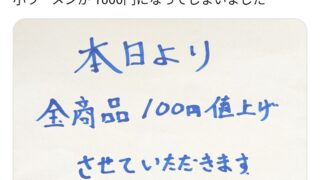 小ラーメンが1000円になってしまいました
本日より
全商品100円値上げ
させていただきます